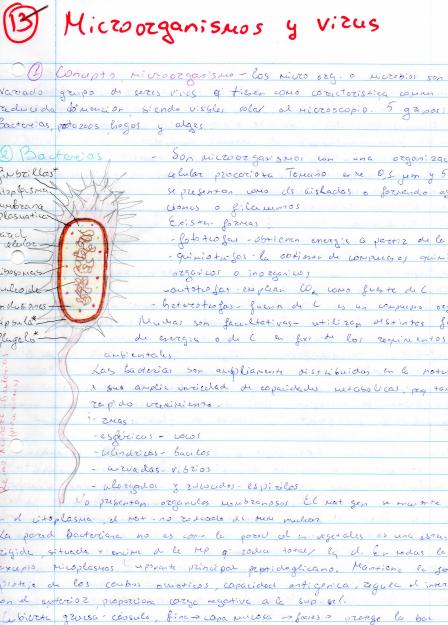 13 Microorganismos y virus
① Concepto, microorganismo - los micro org. o microbios son
variado grupo de seres vivos q tienen como característica común
reducida dimensión, siendo visibles al microscopio. 5 grupos:
bacterias, protozoos hongos y algas.
② Bacterias
- Son microorganismos con una organiza
celular procariota Tamaño entre 0,1 µm y 5
se presentan como cls aisladas o formando
o filamentos
Existen formas
- fototrofas - obtienen energía a partir de la
- quimiotrofas - la obtienen de compuestos quími
orgánicos o inorgánicos
- autótrofas - emplean CO₂ como fuente de C
- heterótrofas - fuente de C es un compuesto or
Muchas son facultativas - utilizan distintas f
de energía o de C en fx de los requerimientos
ambientales.
Las bacterias son ampliamente distribuidas en la natu
x su amplia variedad de capacidades metabólicas, peq tam
rápido crecimiento.
Fimbrillas*
citoplasma
membrana
plasmática
pared
celular
ribosomas
nucleoide
inclusiones
cápsula*
flagelo*
formas:
- esféricas - cocos
- cilíndricas - bacilos
- curvadas - vibrios
- alargados y espirilos
No presentan orgánulos membranosos El mat gen se
el citoplasma, el mat no rodeado de mem nuclear
La pared bacteriana no es como la pared cl en vegetales es una
rígida situada x encima de la MP q rodea total/ la cl. En todas
excepto micoplasmas principal peptidoglicano. Mantiene la
protege de los cambios osmóticos, capacidad antigénica, regula el inter
con el exterior, proporciona carga negativa a la sup cel.
Cubierta gruesa - cápsula, fina → capa mucosa → protege la bac